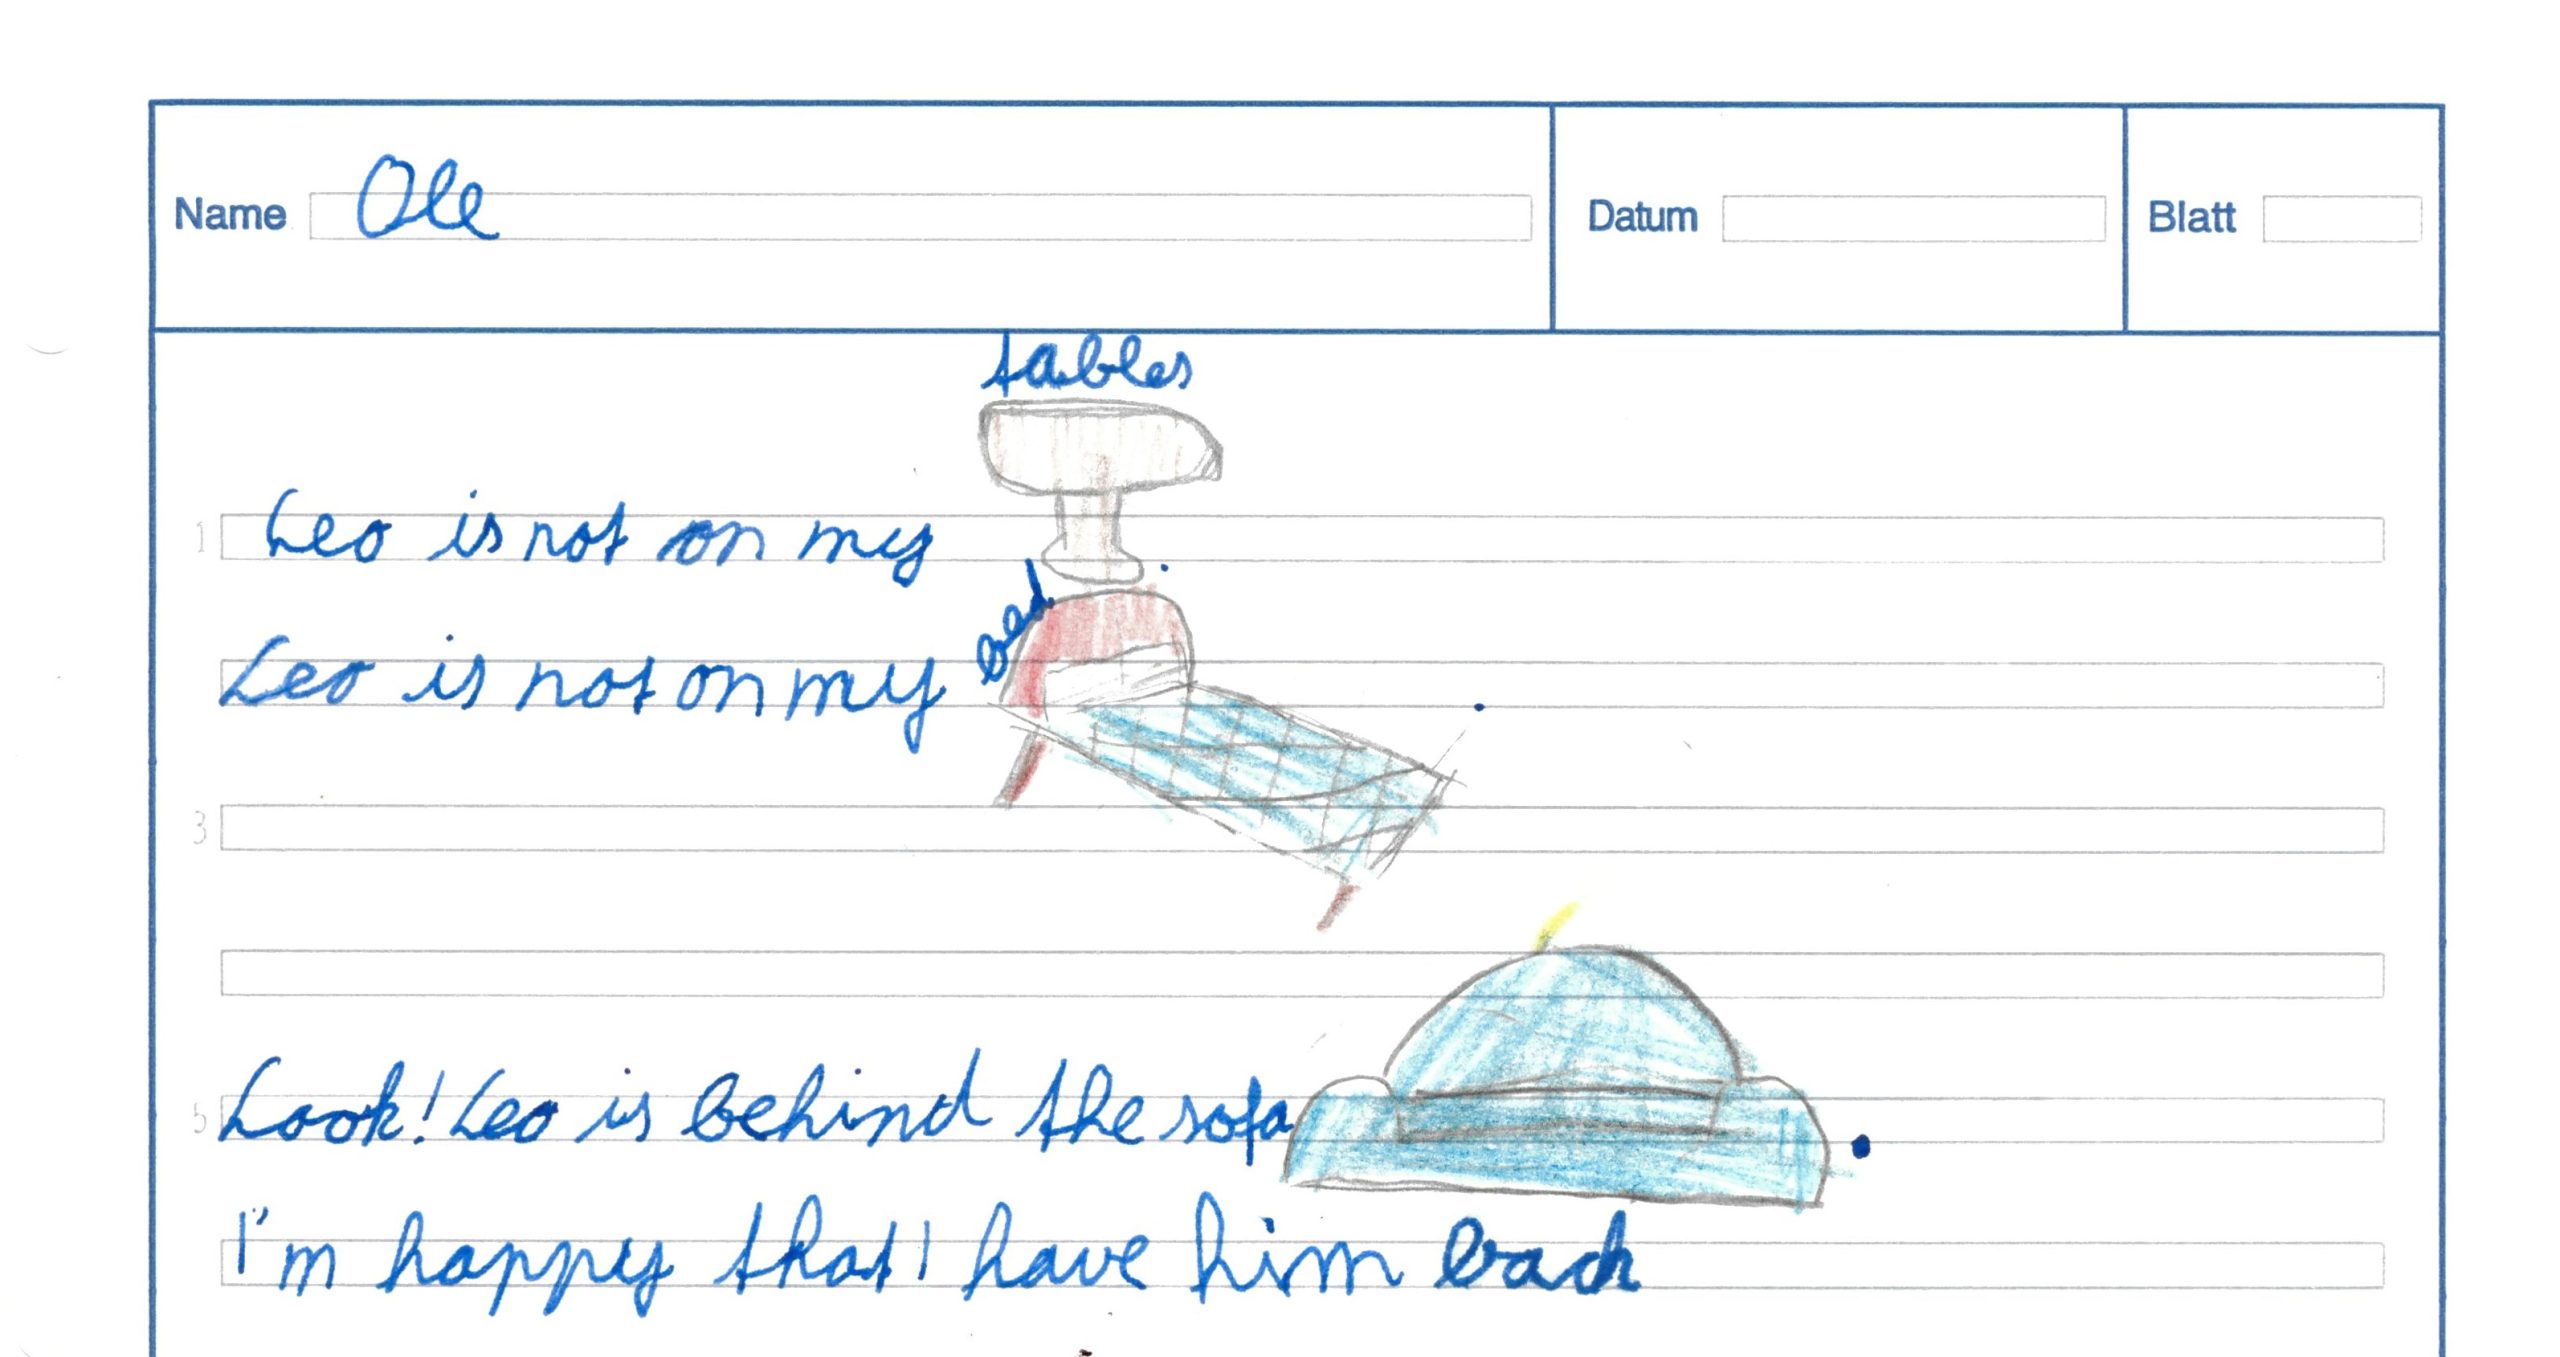 Name Ole Datum Blatt
tables
1 Leo is not on my .
bed
Leo is not on my .
3
5 Look! Leo is behind the sofa .
I'm happy that I have him back